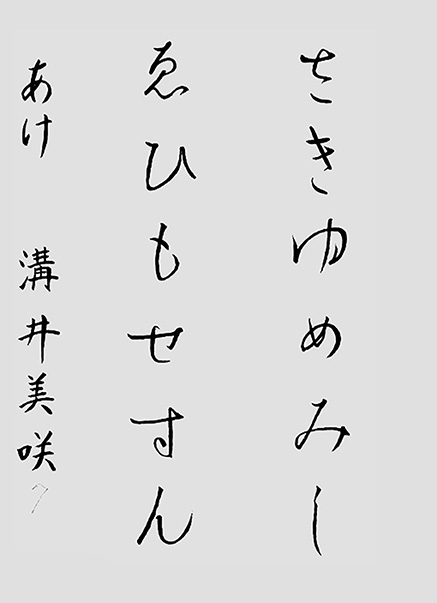 さきゆめみし
ゑひもせすん
あけ 溝井美咲